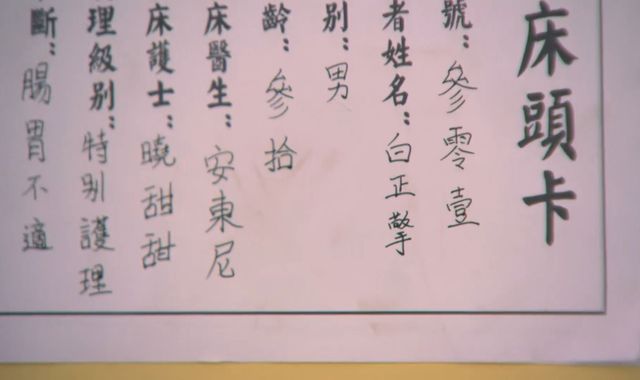 床頭卡
號：參零壹
者姓名：白正擎
别：男
齡：參拾
床醫生：安東尼
床護士：曉甜甜
理級别：特别護理
斷：腸胃不適